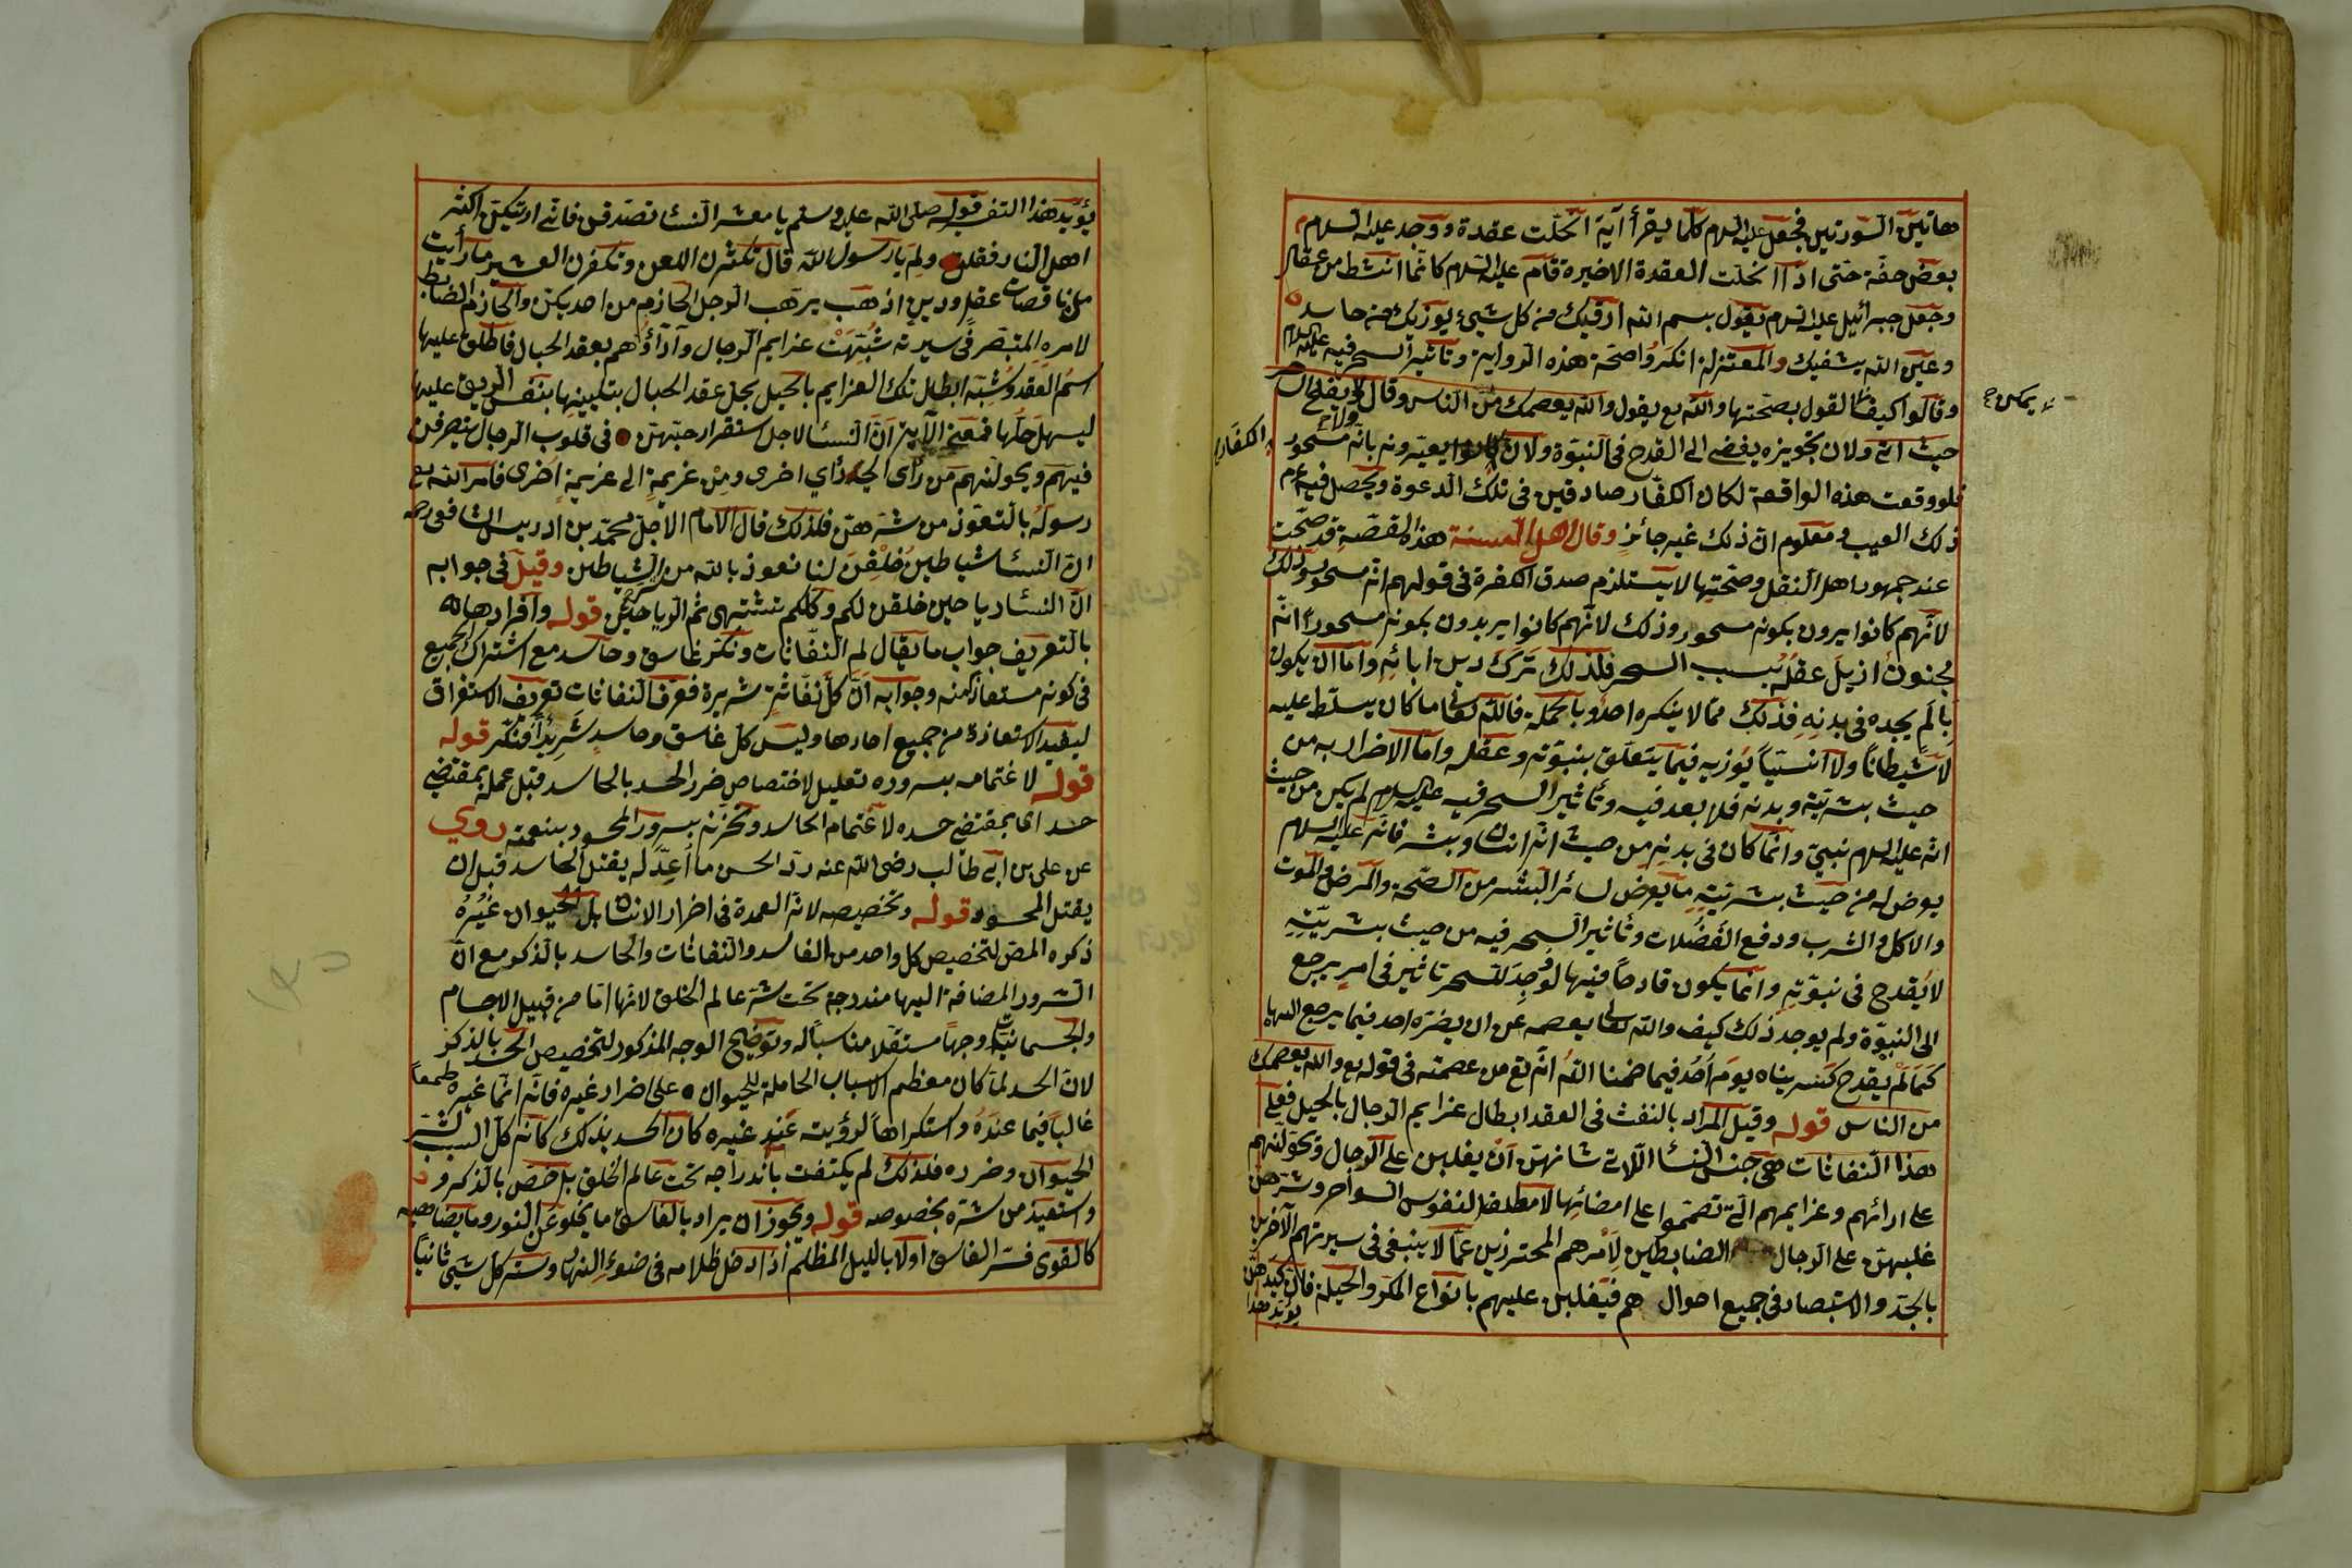 هاتين السّورتين فجعل عليه السلام كلّما يقرأ آية انحلّت عقدة ووجد عليه السلام
بعض خفّة حتى اذا انحلت العقدة الاخيرة قام عليه السلام كانّما انشط من عقال
وجعل جبرائيل عليه السلام يقول بسم الله ارقيك من كل شيء يوذيك من حاسد
وعين الله يشفيك والمعتزلة انكروا صحة هذه الرواية وتاثير السحر فيه عليه السلام
وقالوا كيف القول بصحّتها والله تع يقول والله يعصمك من الناس وقال لا يفلح الساحر
يمكن
حيث اتى ولان تجويزه يفضى الى القدح فى النبوّة ولان يعيّرونه بانّه مسحور
الكفار
فلو وقعت هذه الواقعة لكان الكفّار صادقين فى تلك الدعوة ويحصل فيه عم
ذلك العيب ومعلوم ان ذلك غير جائز وقال اهل السنة هذه القصة قد صحّت
عند جمهور اهل النقل وصحّتها لا يستلزم صدق الكفرة فى قولهم انّه مسحور وذلك
لانّهم كانوا يريدون بكونه مسحور وذلك لانّهم كانوا يريدون بكونه مسحوراً انّه
مجنون ازيل عقله بسبب السحر فلذلك ترك دين ابائه واما ان يكون
بالم يجده فى بدنه فذلك ممّا لا ينكره احد وبالجملة فالله تعالى ما كان يسلّط عليه
لا شيطاناً ولا انسيّاً يوذيه فيما يتعلّق بنبوّته وعقله وامّا الاضرار به من
حيث بشريّته وبدنه فلا بعد فيه وتأثير السحر فيه عليه السلام لم يكن من حيث
انه عليه السلام نبيّ وانّما كان فى بدنه من حيث انّه انسان وبشر فانّه عليه السلام
يعرض له من حيث بشريّته ما يعرض لسائر البشر من الصّحة والمرض والموت
والاكل والشرب ودفع الفضلات وتأثير السحر فيه من حيث بشريّته
لا يقدح فى نبوّته وانما يكون قادحاً فيها لو وجد للسحر تاثير فى امر يرجع
الى النبوّة ولم يوجد ذلك كيف والله تعالى يعصمه عن ان يضرّه احد فيما يرجع اليها
كما لم يقدح كسر رباعيته يوم أحد فيما ضمنا الله انّه تع من عصمته فى قوله تع والله يعصمك
من الناس قوله وقيل المراد بالنفث فى العقد ابطال عزايم الرجال بالحيل فعلى
هذا النفاثات هى جنس النساء اللاتى شانهنّ أن يغلبن على الرجال وتحولنهم
على ارائهم وعزايمهم التى تصمّموا على امضائها لا مطلقا النفوس السواحر وشرهنّ
غلبتهنّ على الرجال الضابطين لأمرهم المحترزين عمّا لا ينبغى فى سيرتهم الآخرين
بالجدّ والاستبصار فى جميع احوالهم فيغلبن عليهم بانواع المكر والحيلة فان كيدهنّ
يؤيد هذا
يؤيّد هذا التفسير قوله صلى الله عليه وسلم يا معشر النساء تصدقن فانى اريتكنّ اكثر
اهل النار فقلن ولم يا رسول الله قال تكثرن اللعن وتكفرن العشير ما رأيت
من ناقصات عقل ودين اذهب يرهب الرجل الحازم من احديكنّ والحازم الضابط
لامره المتبصّر فى سيرته شُبّهت عزايم الرجال وآراؤهم بعقد الحبال فاطلق عليها
اسم العقد وشبّه ابطال تلك العزايم بالحيل بحلّ عقد الحبال بتليينها بنفث الريق عليها
ليسهل حلّها فمعنى الآية انّ النساء لاجل استقرار حبّهنّ فى قلوب الرجال يتصرفن
فيهم ويحولنهم من رأى الى رأي اخرى ومن عزيمة الى عزيمة اخرى فامر الله تع
رسوله بالتعوّذ من شرهنّ فلذلك قال الامام الاجلّ محمّد بن ادريس الشافعى رحمه
انّ النساء شياطين خُلقن لنا نعوذ بالله من شرّ الشياطين وقيل فى جوابه
انّ النساء رياحين خلقن لكم وكلكم يشتهى شمّ الرياحين قوله وافرادها
بالتعريف جواب ما يقال لم النفّاثات ونكّر غاسق وحاسد مع اشتراك الجميع
فى كونه مستعاذاً منه وجوابه انّ كلّ نفّاثة شريرة فعرّف النفاثات تعريف الاستغراق
ليفيد الاستعاذة من جميع احادها وليس كل غاسق وحاسد شريراً فنكّر قوله
قوله لاغتمامه بسروره تعليل لاختصاص ضرر الحسد بالحاسد قبل عمله بمقتضى
حسد اى بمقتضى حسده لاغتمام الحاسد وتحزّنه بسرور المحسود بنعمته روي
عن على بن ابى طالب رضى الله عنه در الحسد ما أعدله يقتل الحاسد قبل ان
يقتل المحسود قوله وتخصيصه لانّه العمدة فى اضرار الانسان بل الحيوان غيره
ذكره المص لتخصيص كل واحد من الغاسد والنفاثات والحاسد بالذكر مع انّ
الشرور المضافة اليها مندرجة تحت شرّ عالم الخلق لانّها امّا من قبيل الاجسام
والجسمانيّات وجهاً مستقلا مناسباً له وتوضيح الوجه المذكور لتخصيص الحسد بالذكر
لانّ الحسد لمّا كان معظم الاسباب الحاملة للحيوان على اضرار غيره فانّه انّما غيره طمعاً
غالباً فيما عنده واستكراهاً لرؤيته عند غيره كان الحسد بذلك كانّه كلّ السبب لشرّ
الحيوان وضرره فلذلك لم يكتفت باندراجه تحت عالم الخلق بل خصّ بالذكر و
واستعيذ من شرّه بخصوصه قوله ويجوز ان يراد بالغاسق ما يخلو عن النور وما يضاهيه
كالقوى فسّر الغاسق اولا بالليل المظلم اذا دخل ظلامه فى ضوء النهار وستر كل شيء ثانياً